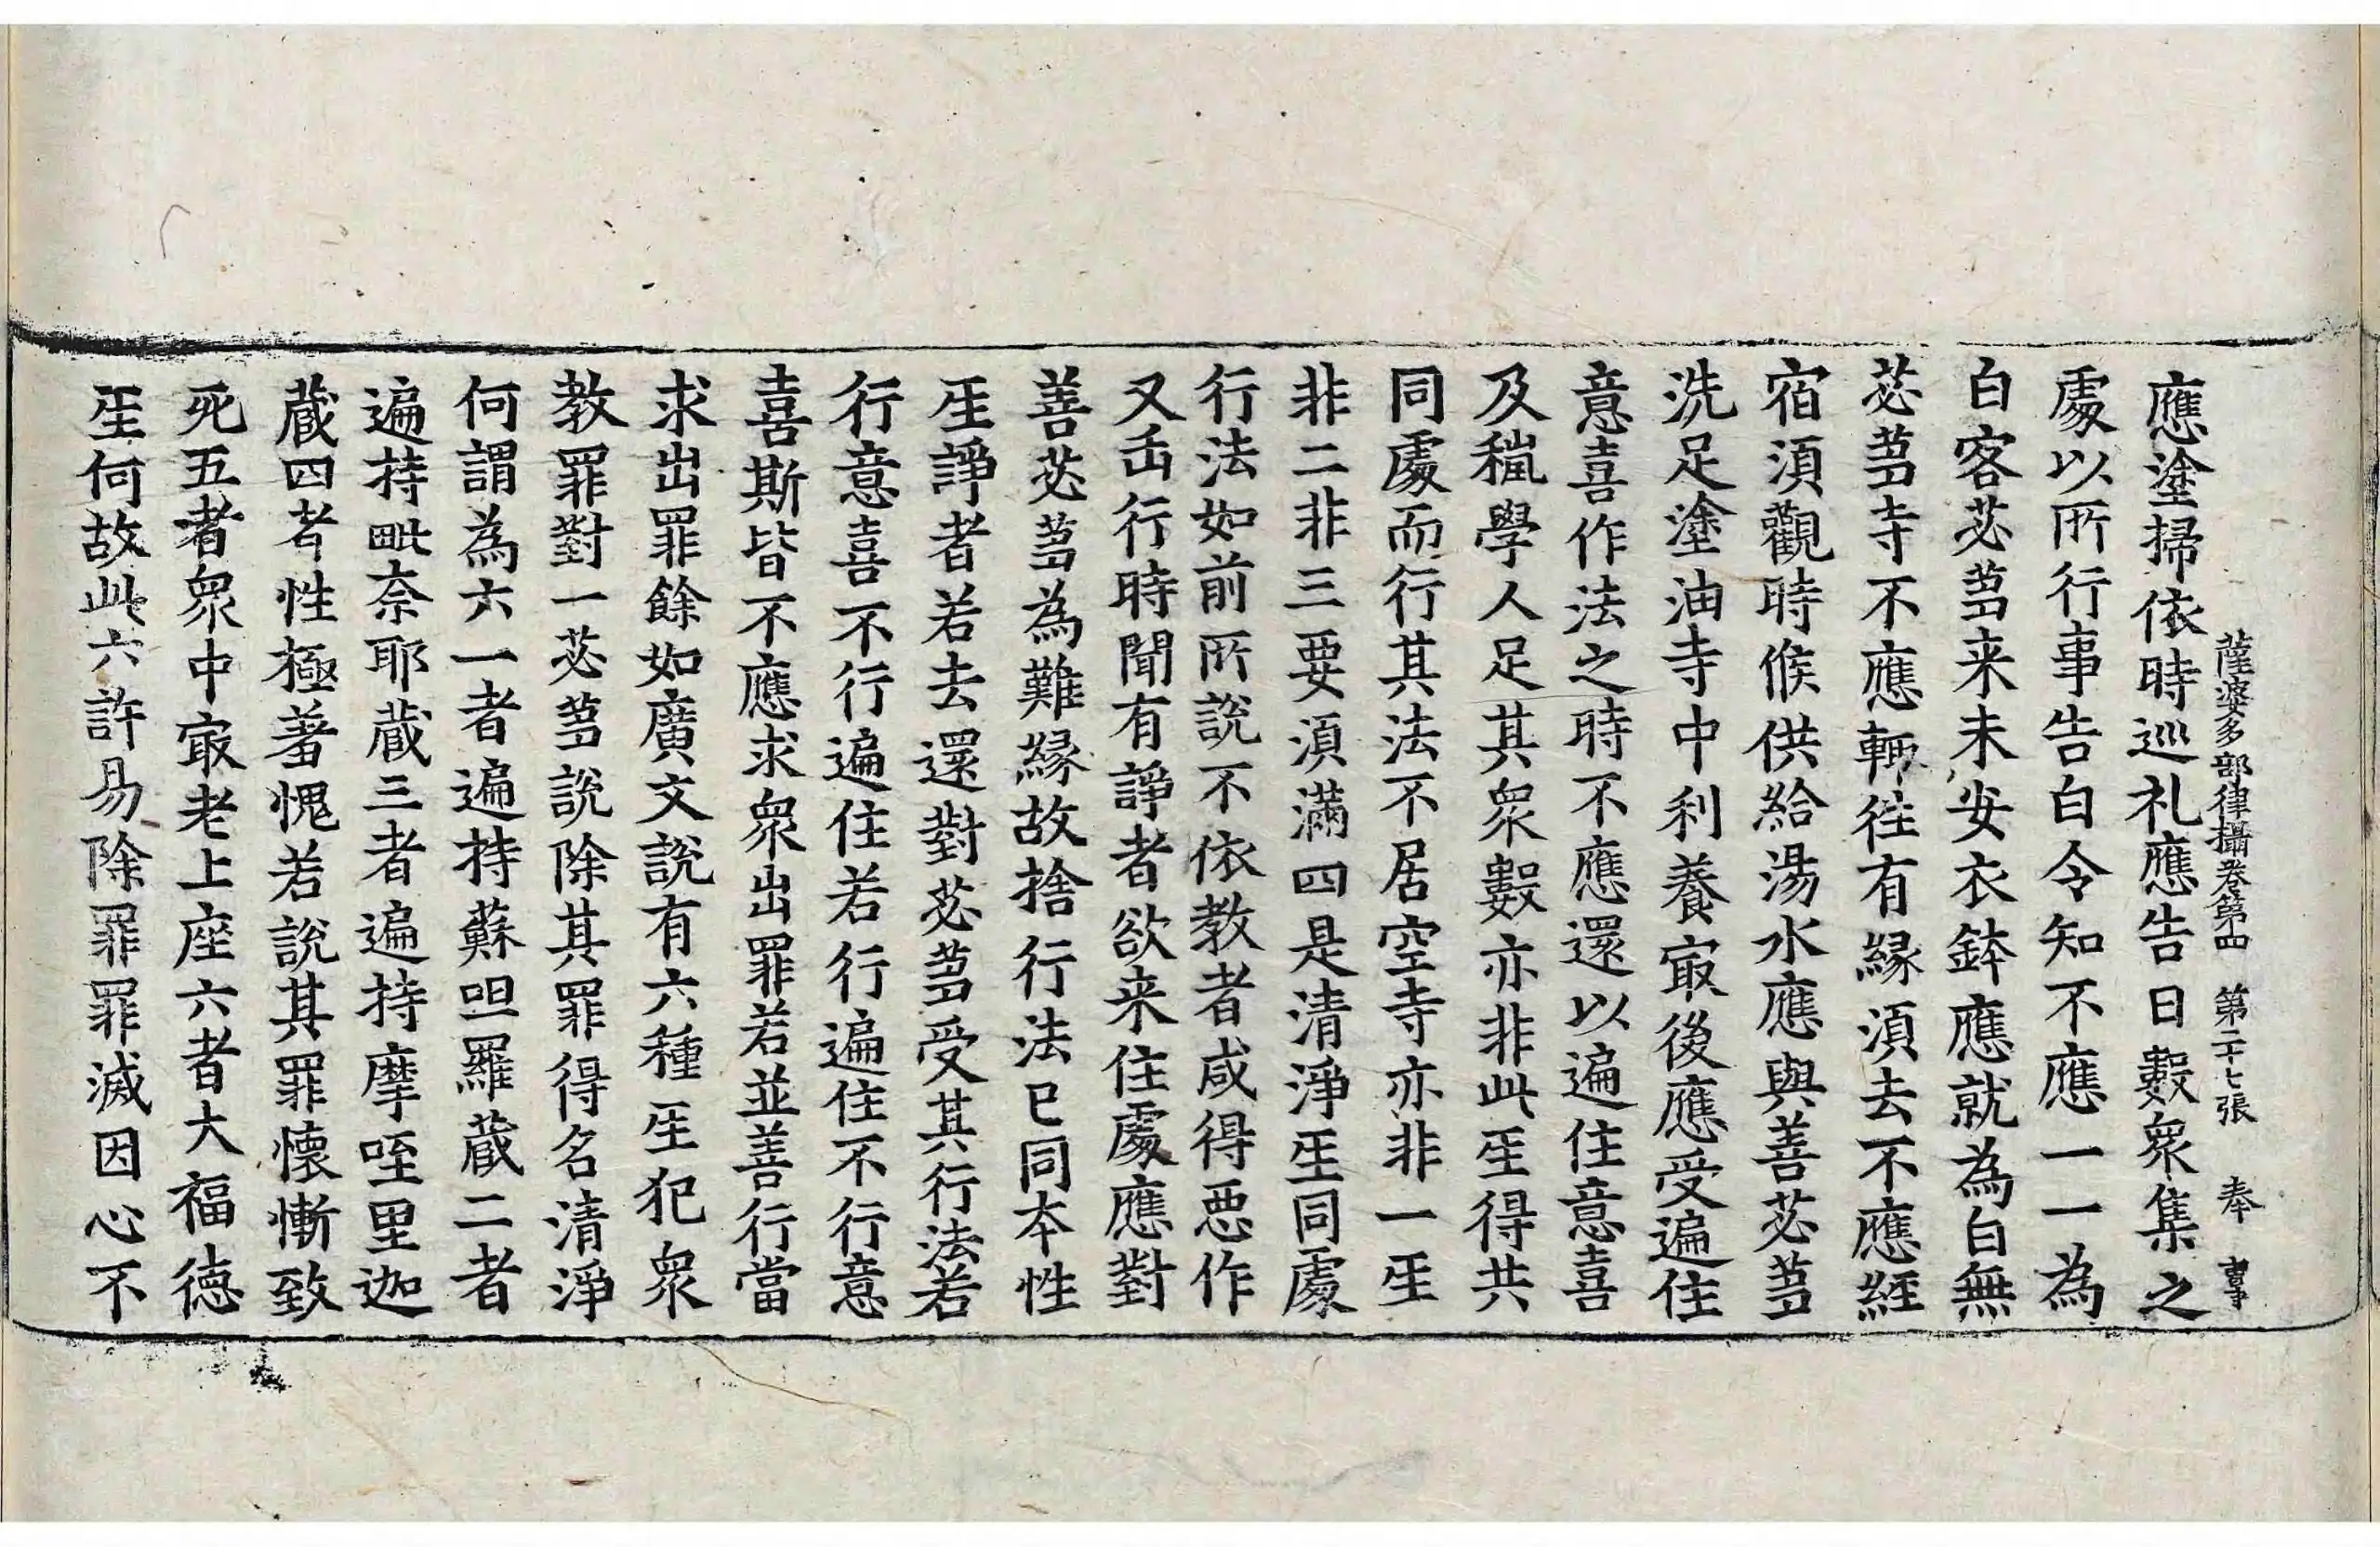 薩婆多部律攝卷第四　第二十七張　奉
應塗掃依時巡礼應告日數衆集之
處以所行事告白令知不應一一為
白客苾蒭来未安衣鉢應就為白無
苾蒭寺不應輒徃有緣湏去不應經
宿湏觀時候供給湯水應與善苾蒭
洗足塗油寺中利養㝡後應受遍住
意喜作法之時不應還以遍住意喜
及穐學人足其衆數亦非此𤯔得共
同處而行其法不居空寺亦非一𤯔
非二非三要湏滿四是清淨𤯔同處
行法如前所說不依教者咸得惡作
又缶行時聞有諍者欲来住處應對
善苾蒭為難緣故捨行法已同夲性
𤯔諍者若去還對苾蒭受其行法若
行意喜不行遍住若行遍住不行意
喜斯皆不應求衆出罪若並善行當
求出罪餘如廣文說有六種𤯔犯衆
教罪對一苾蒭說除其罪得名清淨
何謂為六一者遍持蘇呾羅蔵二者
遍持毗奈耶蔵三者遍持摩咥里迦
蔵四者性極羞愧若說其罪懷慚致
死五者衆中㝡老上座六者大福德
𤯔何故此六許易除罪罪滅因心不